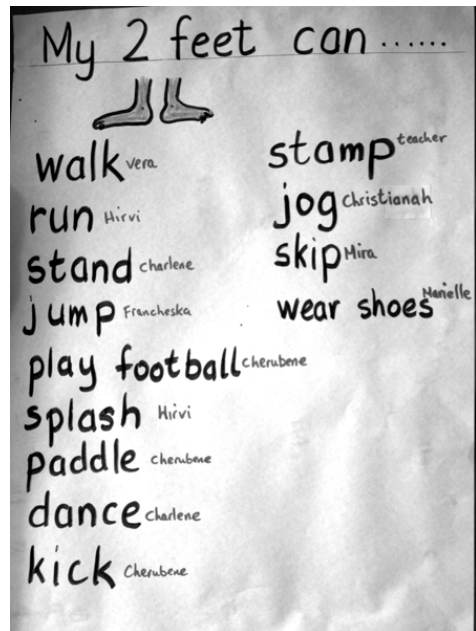 My 2 feet can ......
walk vera
run Hirvi
stand Charlene
jump Francheska
play football Cherubene
splash Hirvi
paddle Cherubene
dance Charlene
kick Cherubene
stamp teacher
jog Christianah
skip Mira
wear shoes Marielle